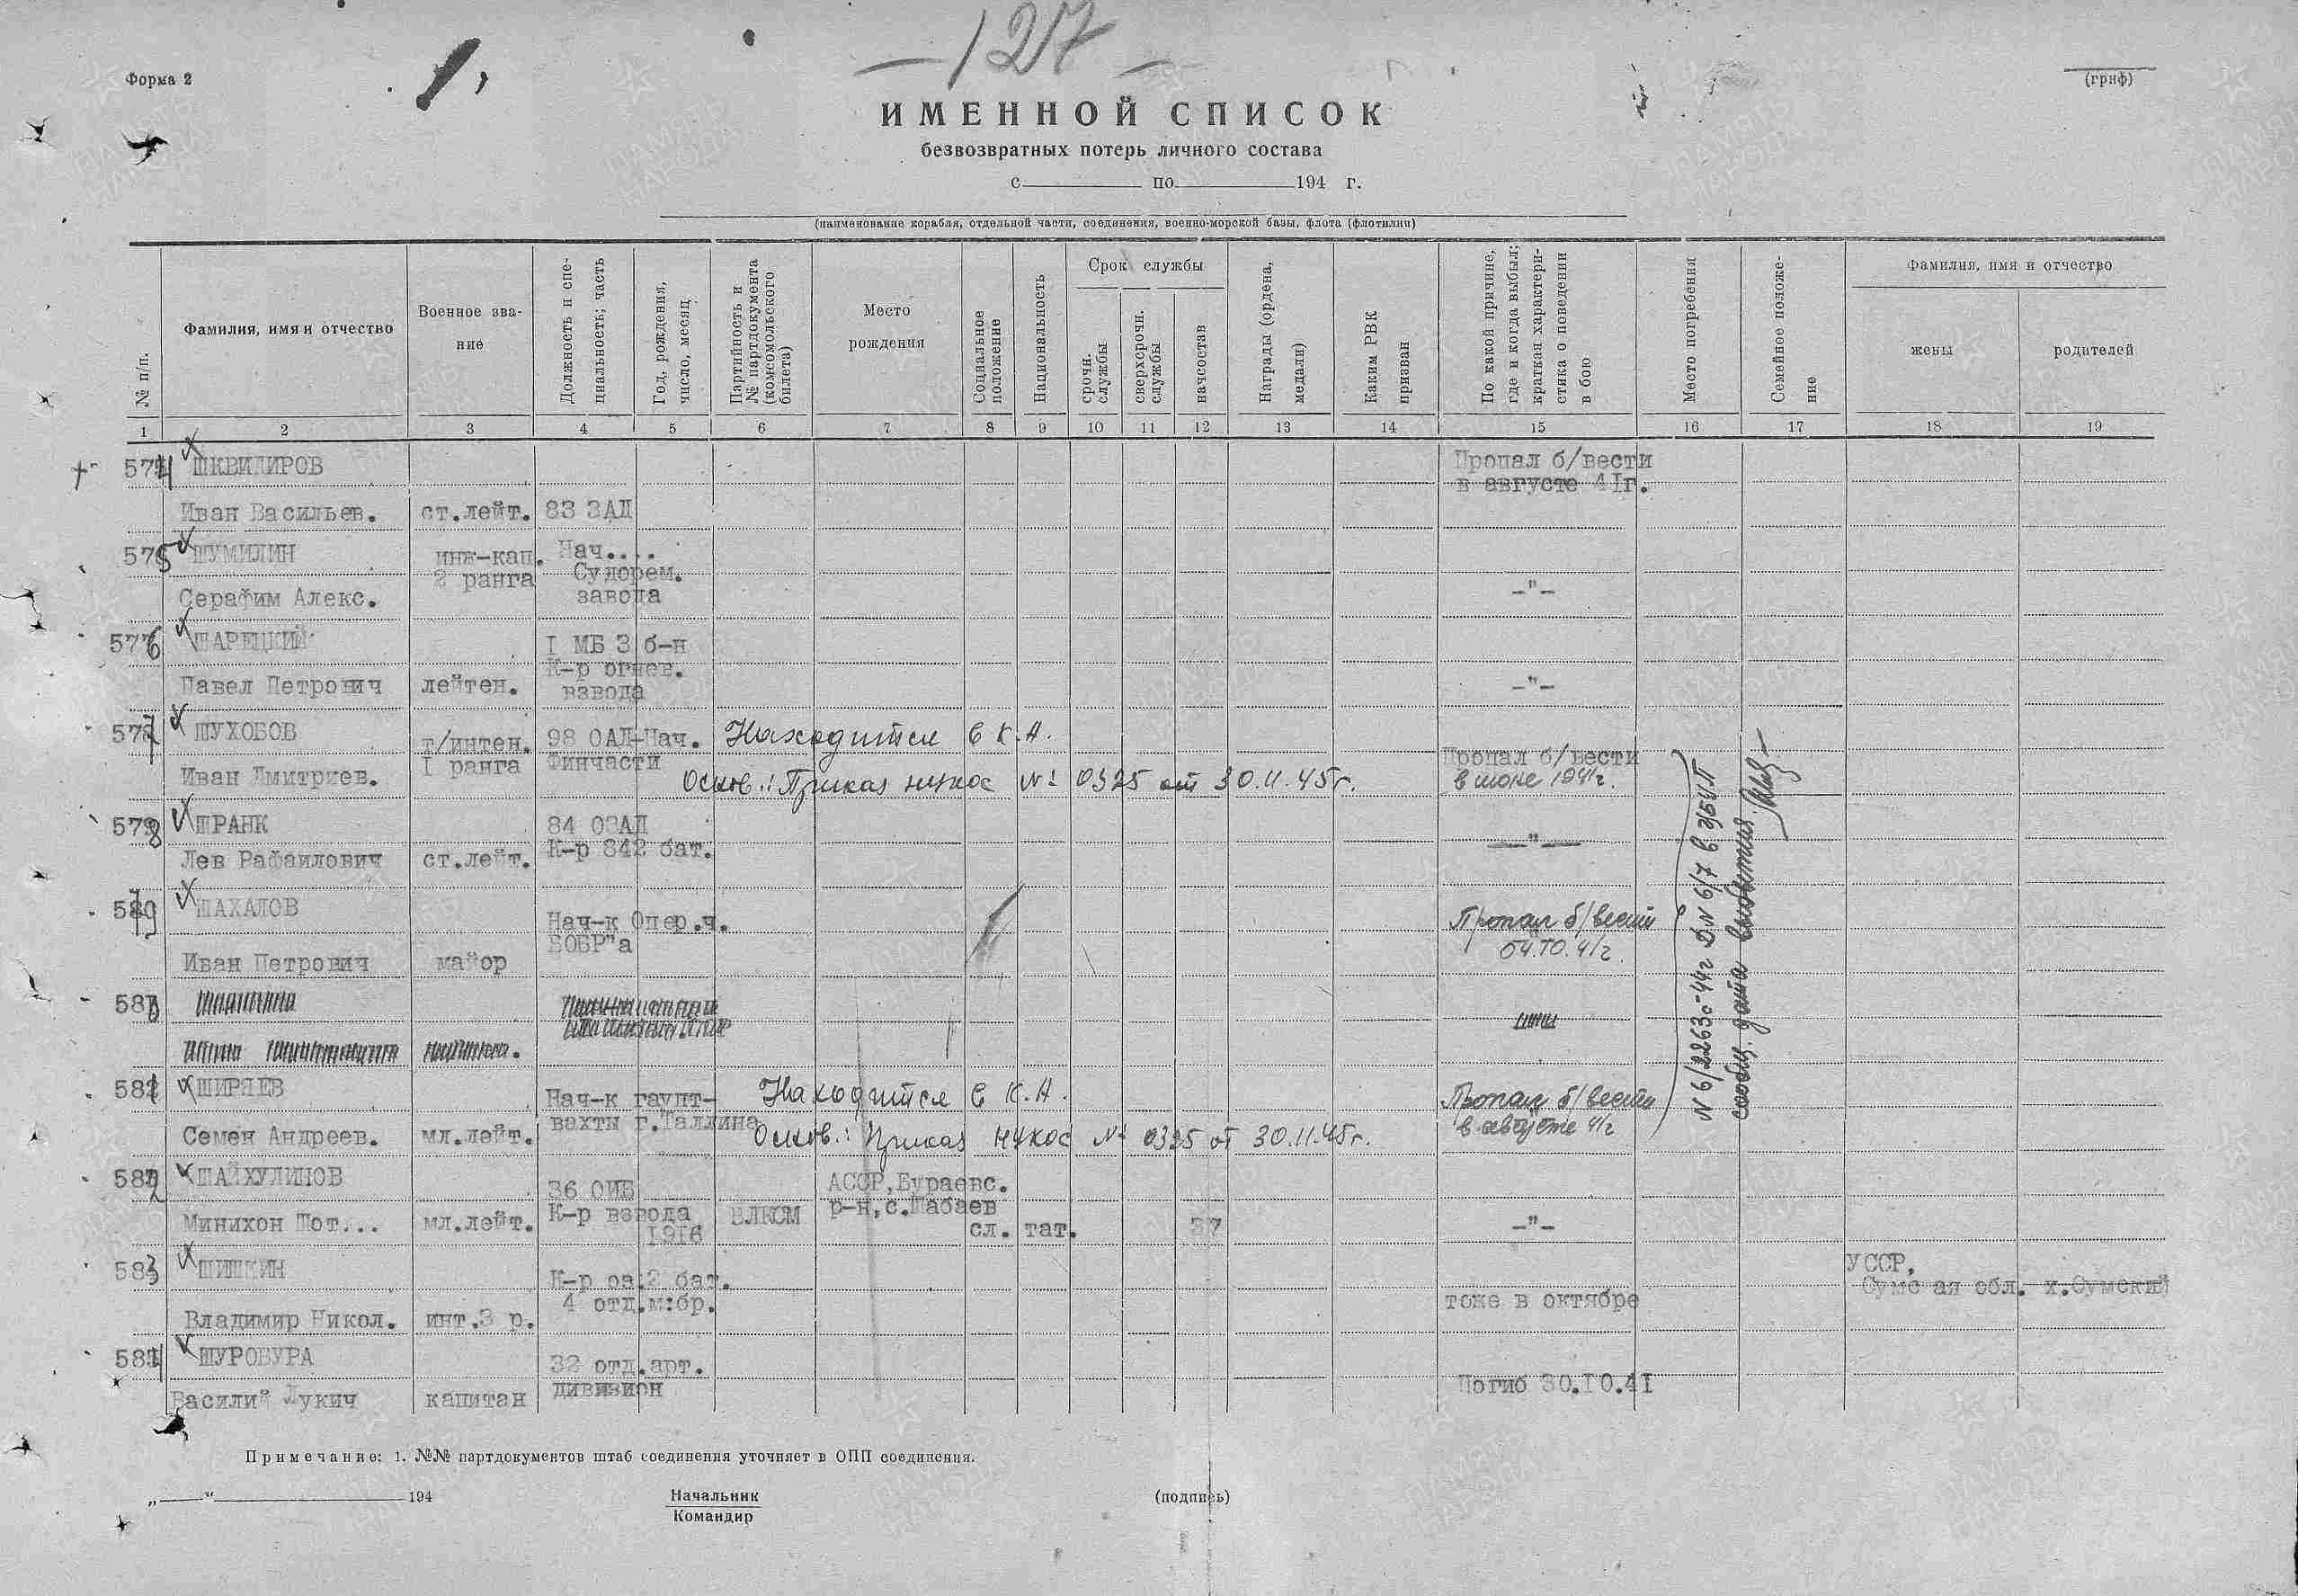 - 127 -
Форма 2
(гриф)
ИМЕННОЙ СПИСОК
безвозвратных потерь личного состава
с по 194 г.
(наименование корабля, отдельной части, соединения, военно-морской базы, флота (флотилии)
№ п/п.
Фамилия, имя и отчество
Военное зва-
ние
Должность и спе-
циальность; часть
Год, рождения,
число, месяц
Партийность и
№ партдокумента
(комсомольского
билета)
Место
рождения
Социальное
положение
Национальность
Срок службы
срочн.
службы
сверхсрочн.
службы
начсостав
Награды (ордена,
медали)
Каким РВК
призван
По какой причине,
где и когда выбыл;
краткая характери-
стика о поведении
в бою
Место погребения
Семейное положе-
ние
Фамилия, имя и отчество
жены
родителей
1 2 3 4 5 6 7 8 9 10 11 12 13 14 15 16 17 18 19
574 ШКВИЛИРОВ Пропал б/вести
в августе 41г.
Иван Васильев. ст.лейт. 83 ЗАД
575 ШУМИЛИН инж-кап. Нач....
2 ранга Судорем.
Серафим Алекс. завода -"-
576 ШАРЕЦКИЙ I МБ 3 б-н
К-р огнев.
Павел Петрович лейтен. взвода -"-
577 ШУХОБОВ т/интен. 98 ОАД-Нач. Находится в К.А.
I ранга Финчасти Пропал б/вести
Иван Дмитриев. Основ.: Приказ НУКОС № 0325 от 30.11.45г. в июне 1941г.
578 ШРАНК 84 ОЗАД -"-
Лев Рафаилович ст.лейт. К-р 842 бат.
579 ШАХАЛОВ Нач-к Опер.ч. Пропал б/вести
БОБР"а 04.10.41г.
Иван Петрович майор
580
581 ШИРЯЕВ Нач-к гаупт- Находится в К.А. Пропал б/вести
вахты г.Таллина в августе 41г
Семен Андреев. мл.лейт. Основ.: Приказ НУКОС № 0325 от 30.11.45г.
582 ШАЙХУЛИНОВ 36 ОИБ АССР,Бураевс.
Минихон Шот... мл.лейт. К-р взвода 1916 ВЛКСМ р-н,с.Шабаев сл. тат. 37 -"-
583 ШИШКИН К-р оа.2 бат. УССР,
4 отд.м:бр. тоже в октябре Сумс ая обл. х.Сумский
Владимир Никол. инт.3 р.
584 ШУРОБУРА 32 отд.арт.
дивизион Погиб 30.10.41
Василий Лукич капитан
сообщ. дата выбытия.
Примечание: 1. №№ партдокументов штаб соединения уточняет в ОПП соединения.
„ “ 194
Начальник
Командир
(подпись)